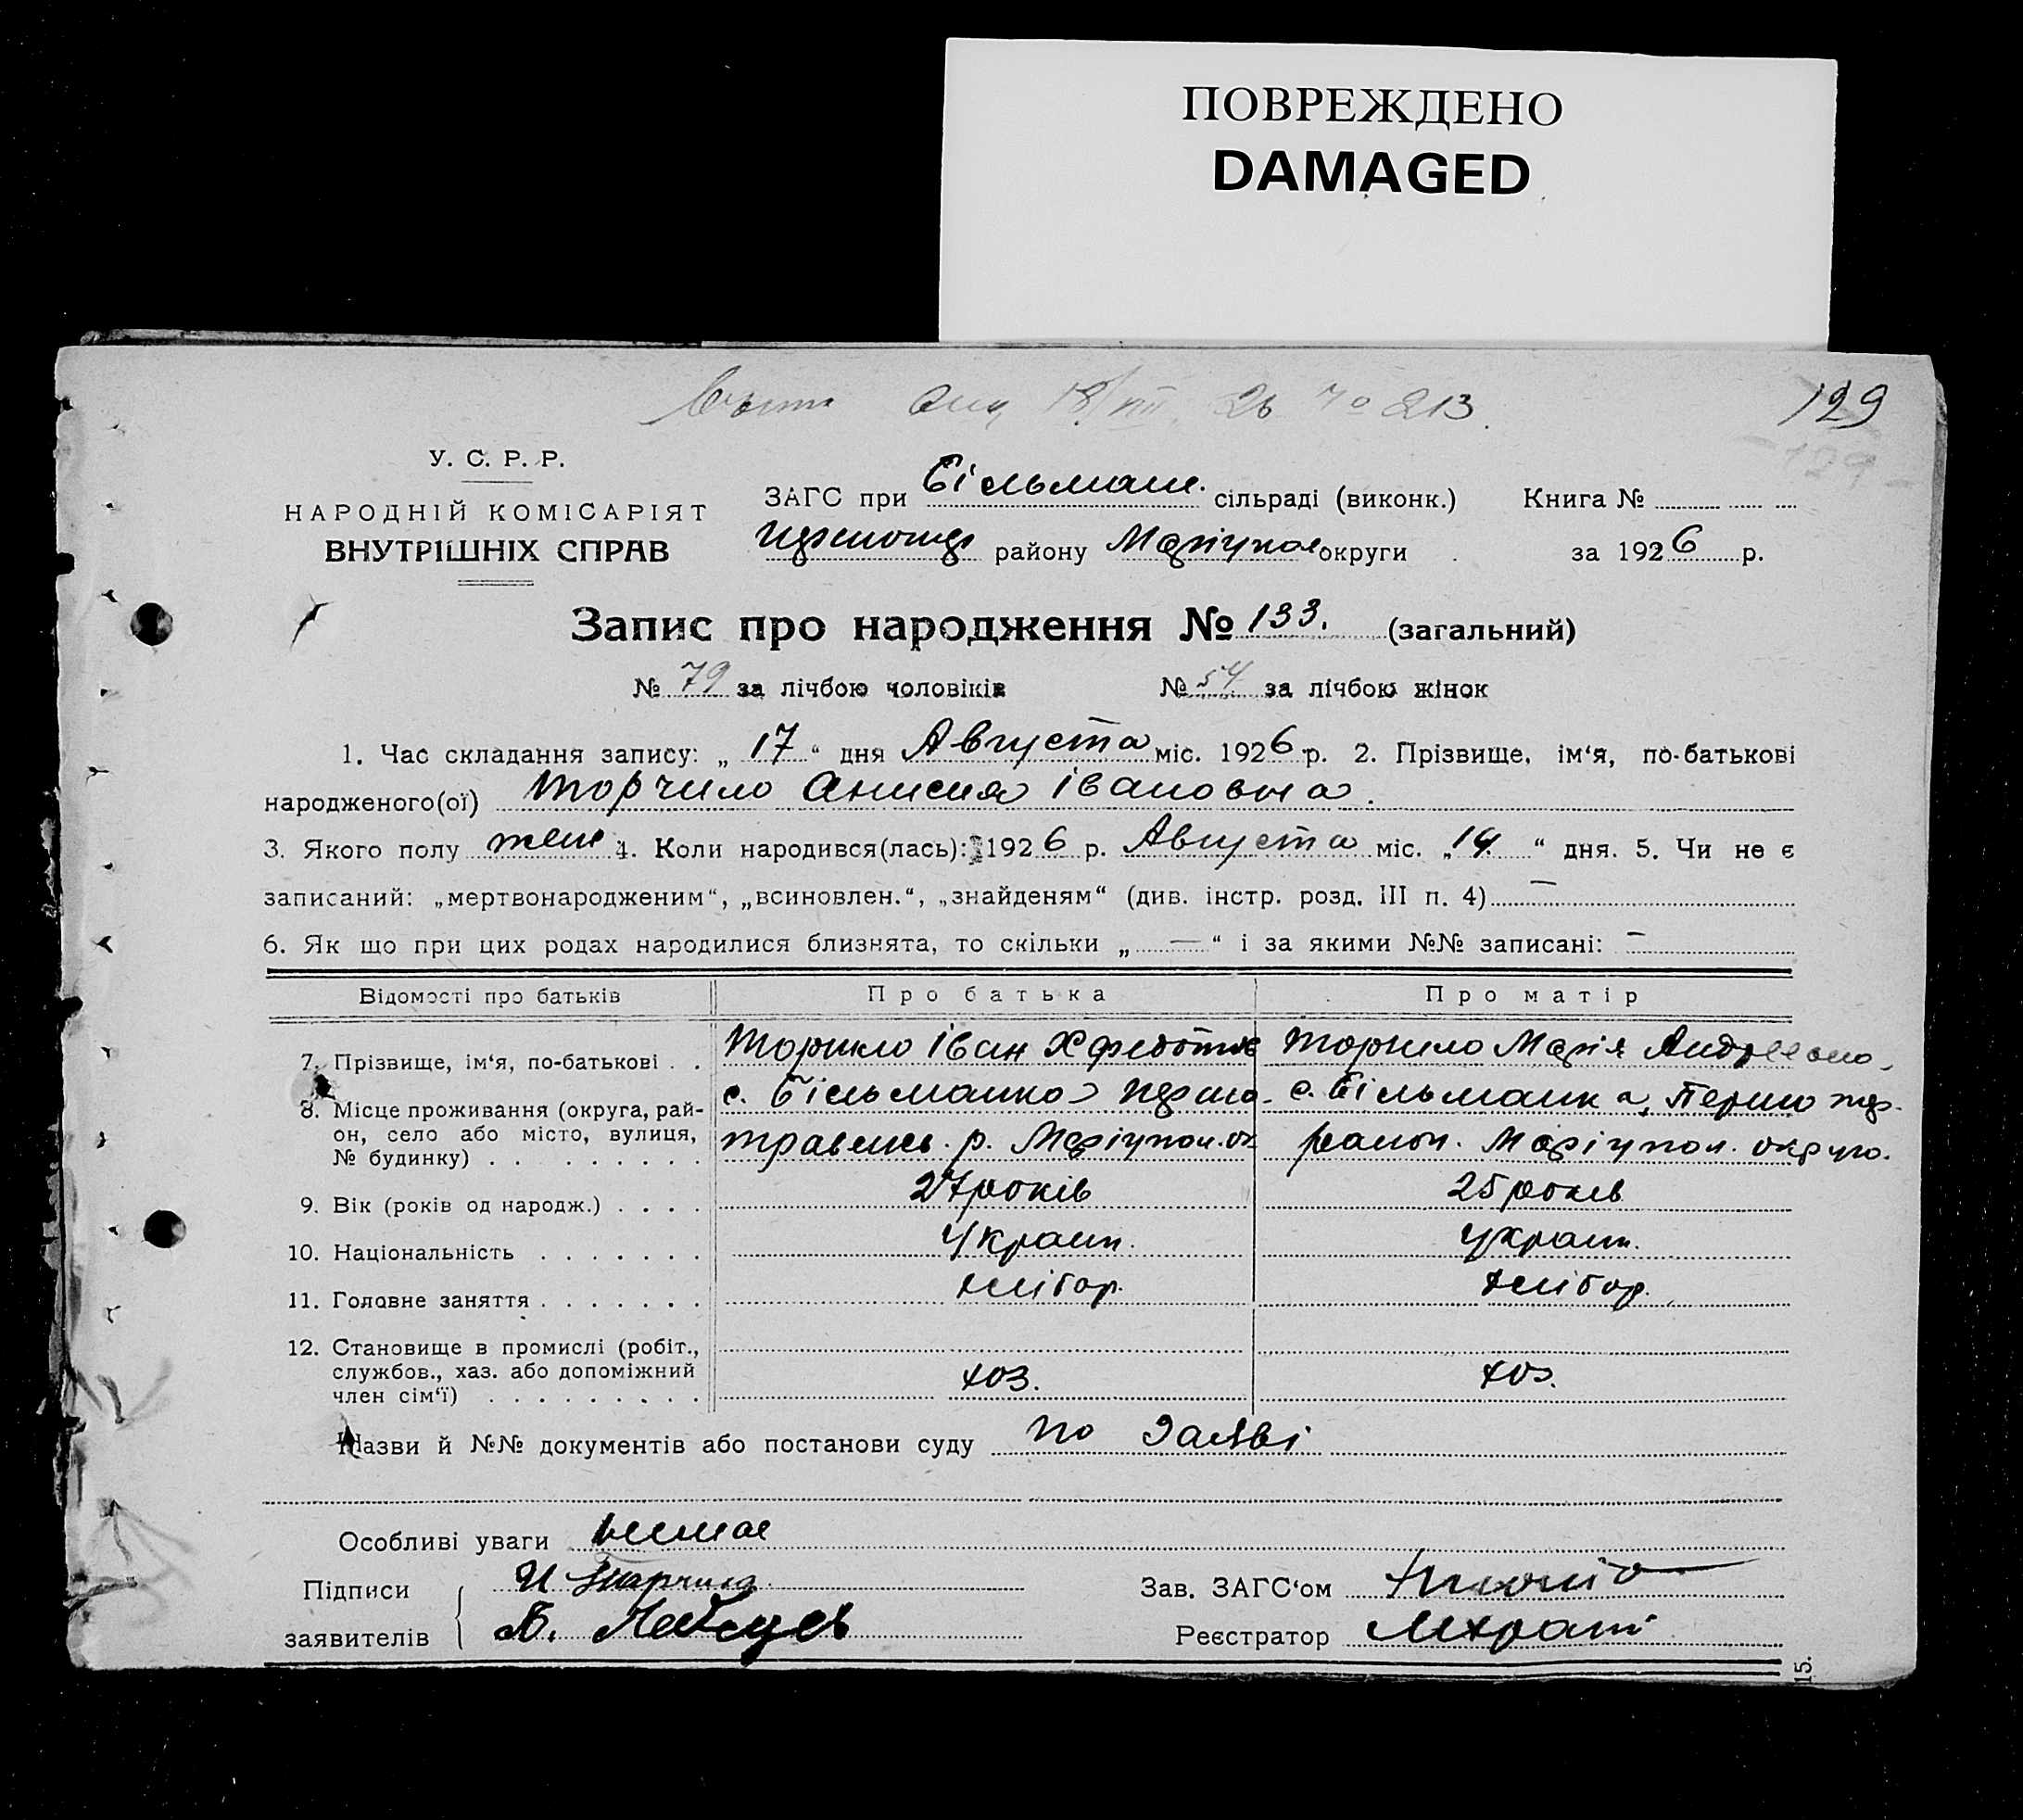 ПОВРЕЖДЕНО
DAMAGED
18/VIII 26 213
129
129
У. С. Р. Р.
НАРОДНІЙ КОМІСАРІЯТ
ВНУТРІШНІХ СПРАВ
ЗАГС при Більман. сільраді (виконк.) Книга №
району Маріупол округи за 1926 р.
Запис про народження № 133. (загальний)
№ 79 за лічбою чоловіків № 54 за лічбою жінок
1. Час складання запису: „17“ дня Августа міс. 1926 р. 2. Прізвище, ім'я, по-батькові
народженого(ої) Торчило Анисия Івановна.
3. Якого полу жен 4. Коли народився(лась): 1926 р. Августа міс. „14.“ дня. 5. Чи не є
записаний: „мертвонародженим“, „всиновлен.“, „знайденям“ (див. інстр. розд. III п. 4) —
6. Як що при цих родах народилися близнята, то скільки „—“ і за якими №№ записані: —
Відомості про батьків Про батька Про матір
7. Прізвище, ім'я, по-батькові . . Торчило Іван Торчило Марія
8. Місце проживання (округа, рай-
он, село або місто, вулиця,
№ будинку) . . . . . . . . с. Більманка Перво-
травнев. р. Маріупол. ок
с. Більманка,
район. Маріупол. округи.
9. Вік (років од народж.) . . . . 27 років 25 років
10. Національність . . . . . . . Украин. Украин.
11. Головне заняття . . . . . . . хлібор. хлібор.
12. Становище в промислі (робіт.,
службов., хаз. або допоміжний
член сім'ї) . . . . . . . . . хоз. хоз.
Назви й №№ документів або постанови суду по заяві
Особливі уваги немає
Підписи
заявителів И Торчило
Зав. ЗАГС'ом
Реєстратор
15.